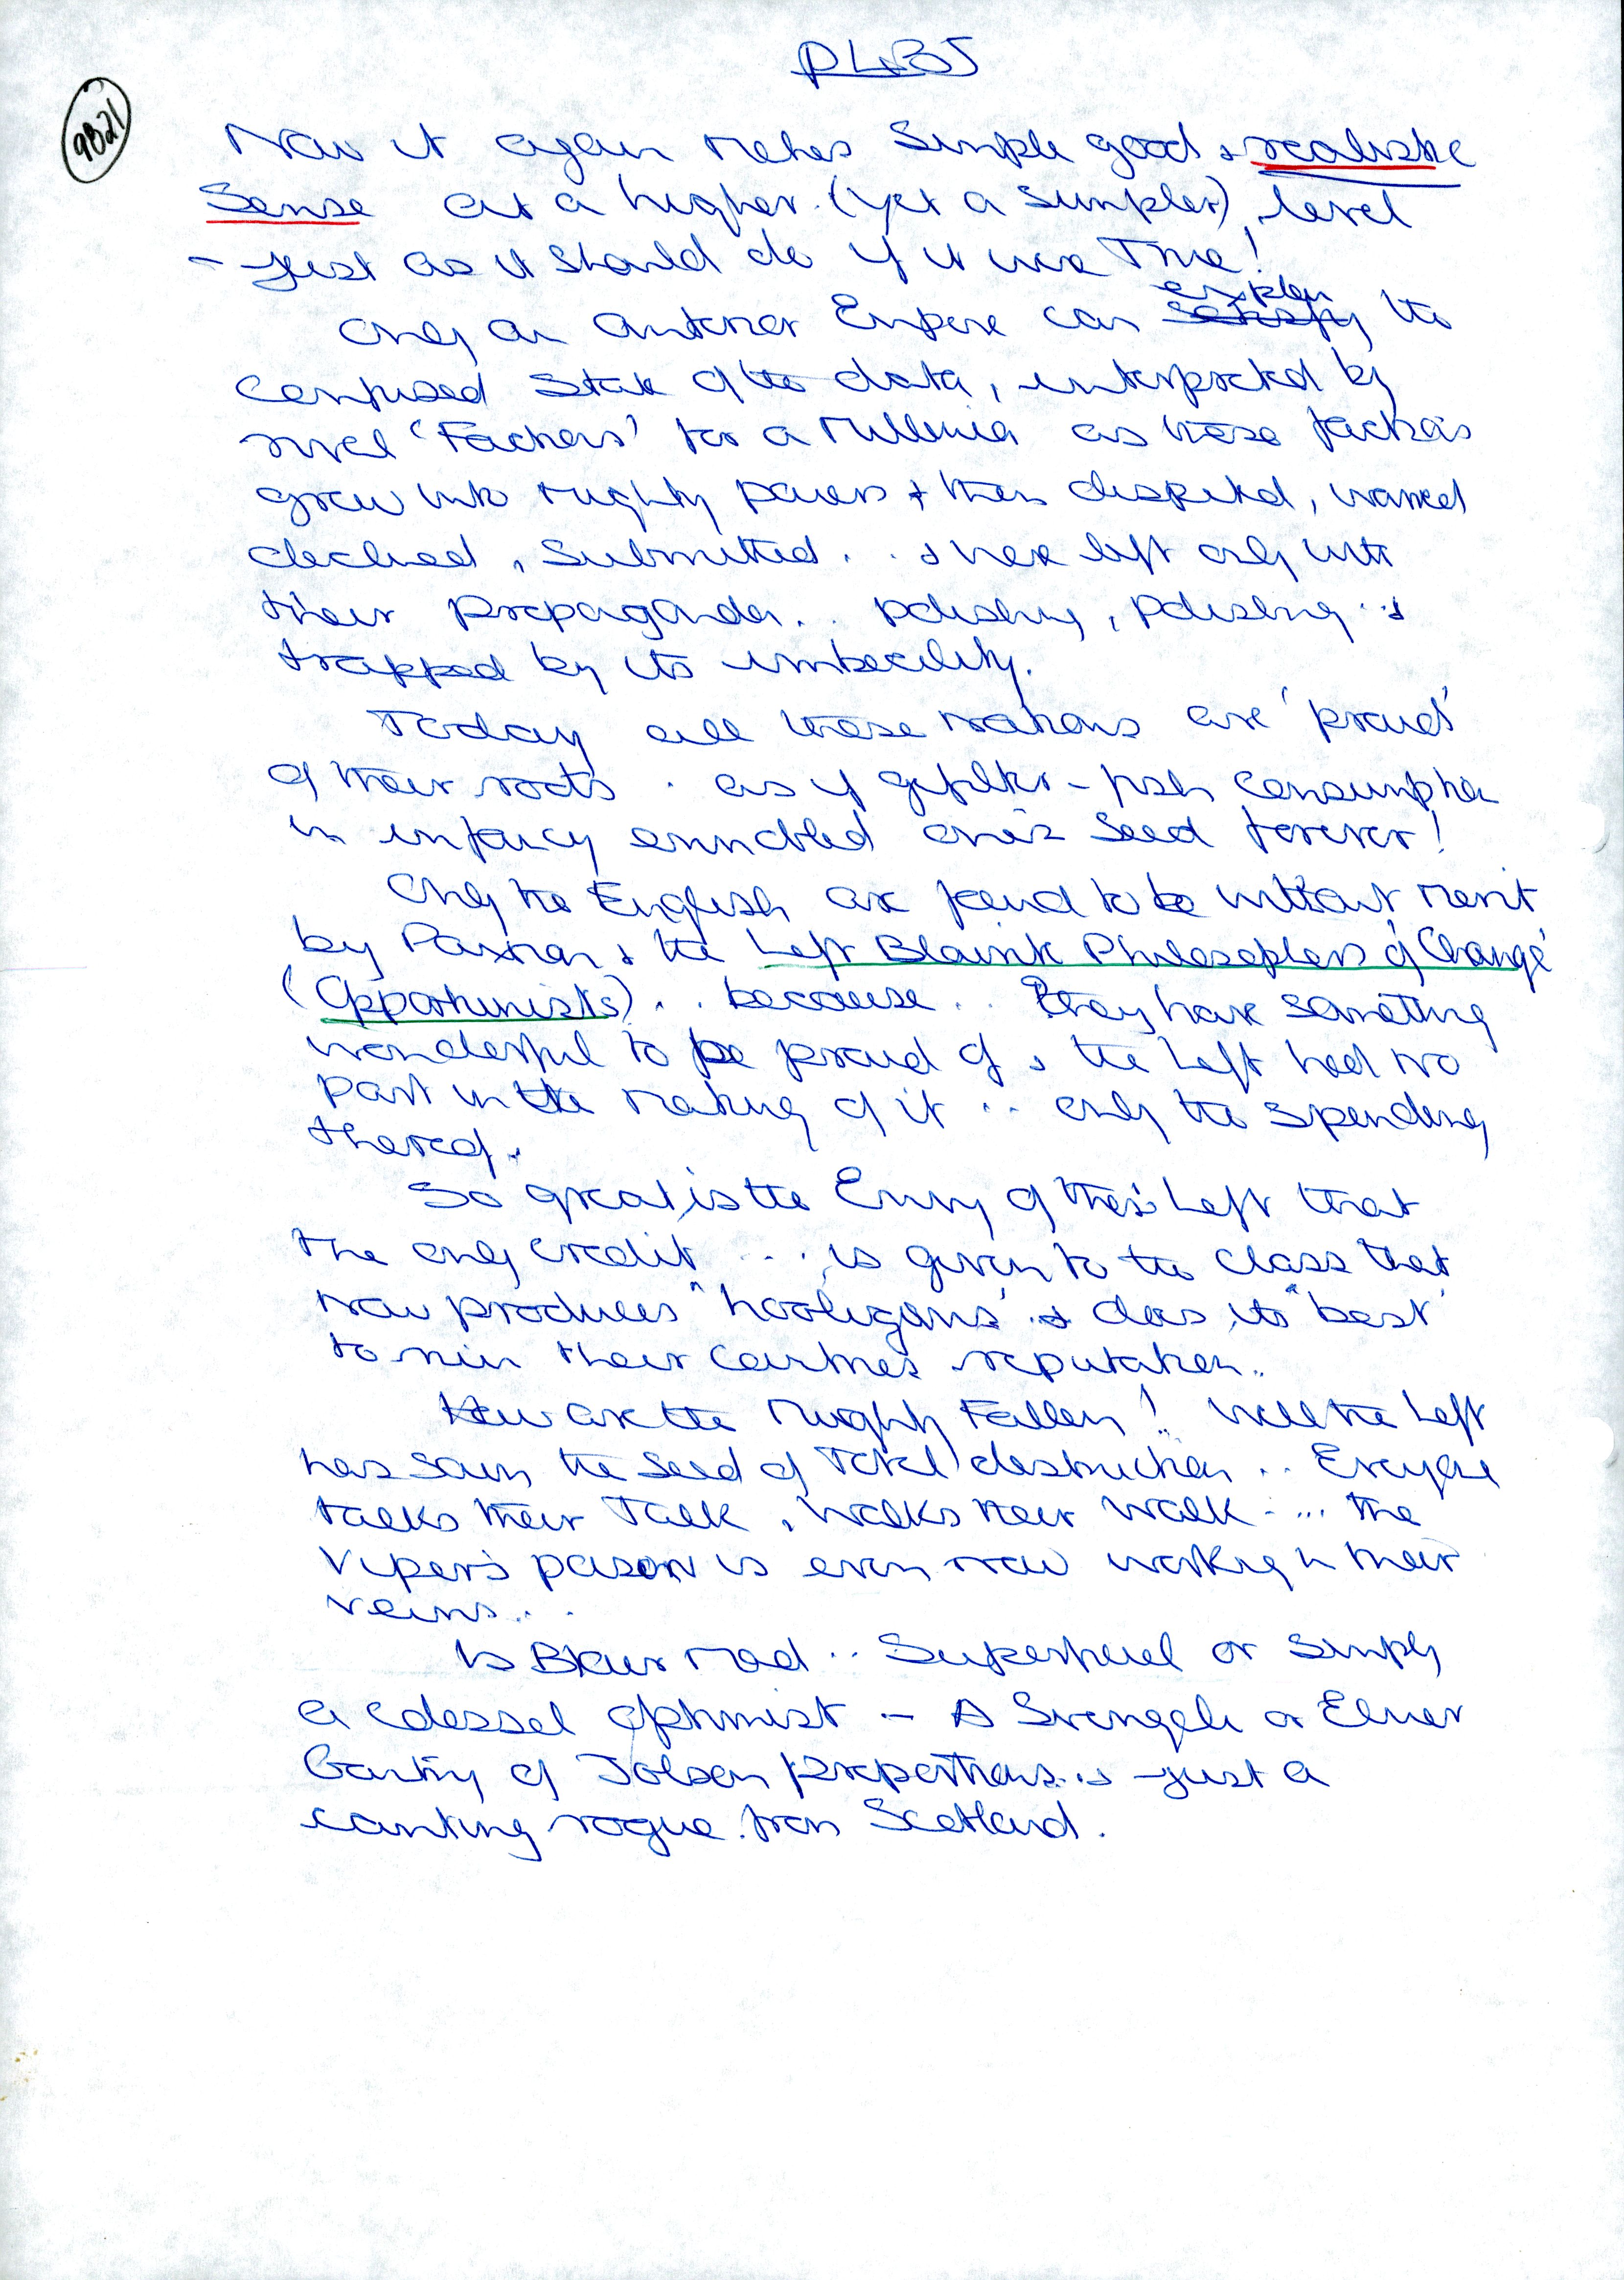 9B21
Now it again makes Simple good & realistic
Sense at a higher (yet a simpler) level
- just as it should do if it were True!
explain
Only an Empire can satisfy the
confused state of the data, interpreted by
rival 'Factions' for a Millenia as those factions
grew into mighty powers & then disputed, warred
declined, Submitted . . & were left only with
their propaganda . . polishing, polishing . . &
trapped by its imbecility.
Today all those nations are 'proud'
of their roots . as if gefilter - fish consumption
in infancy ennobled one's seed forever!
Only the English are found to be without merit
by Paxman & the Left Philosophers of 'Change'
(Opportunists) . . because . . they have something
wonderful to be proud of & the Left had no
part in the making of it . . only the spending
thereof.
So great is the Envy of this Left that
the only credit . . . is given to the class that
now produces "hooligans" & does its "best"
to ruin their countries reputation . .
How are the Mighty Fallen! Well the Left
has sown the seed of Total destruction . . Everyone
talks their Talk, walks their walk . . . the
Viper's poison is even now working in their
veins . . .
Is Blair Mad . . or simply
a colossal optimist - A Svengali or Elmer
Gantry of Jolson proportions . . just a
canting rogue from Scotland.